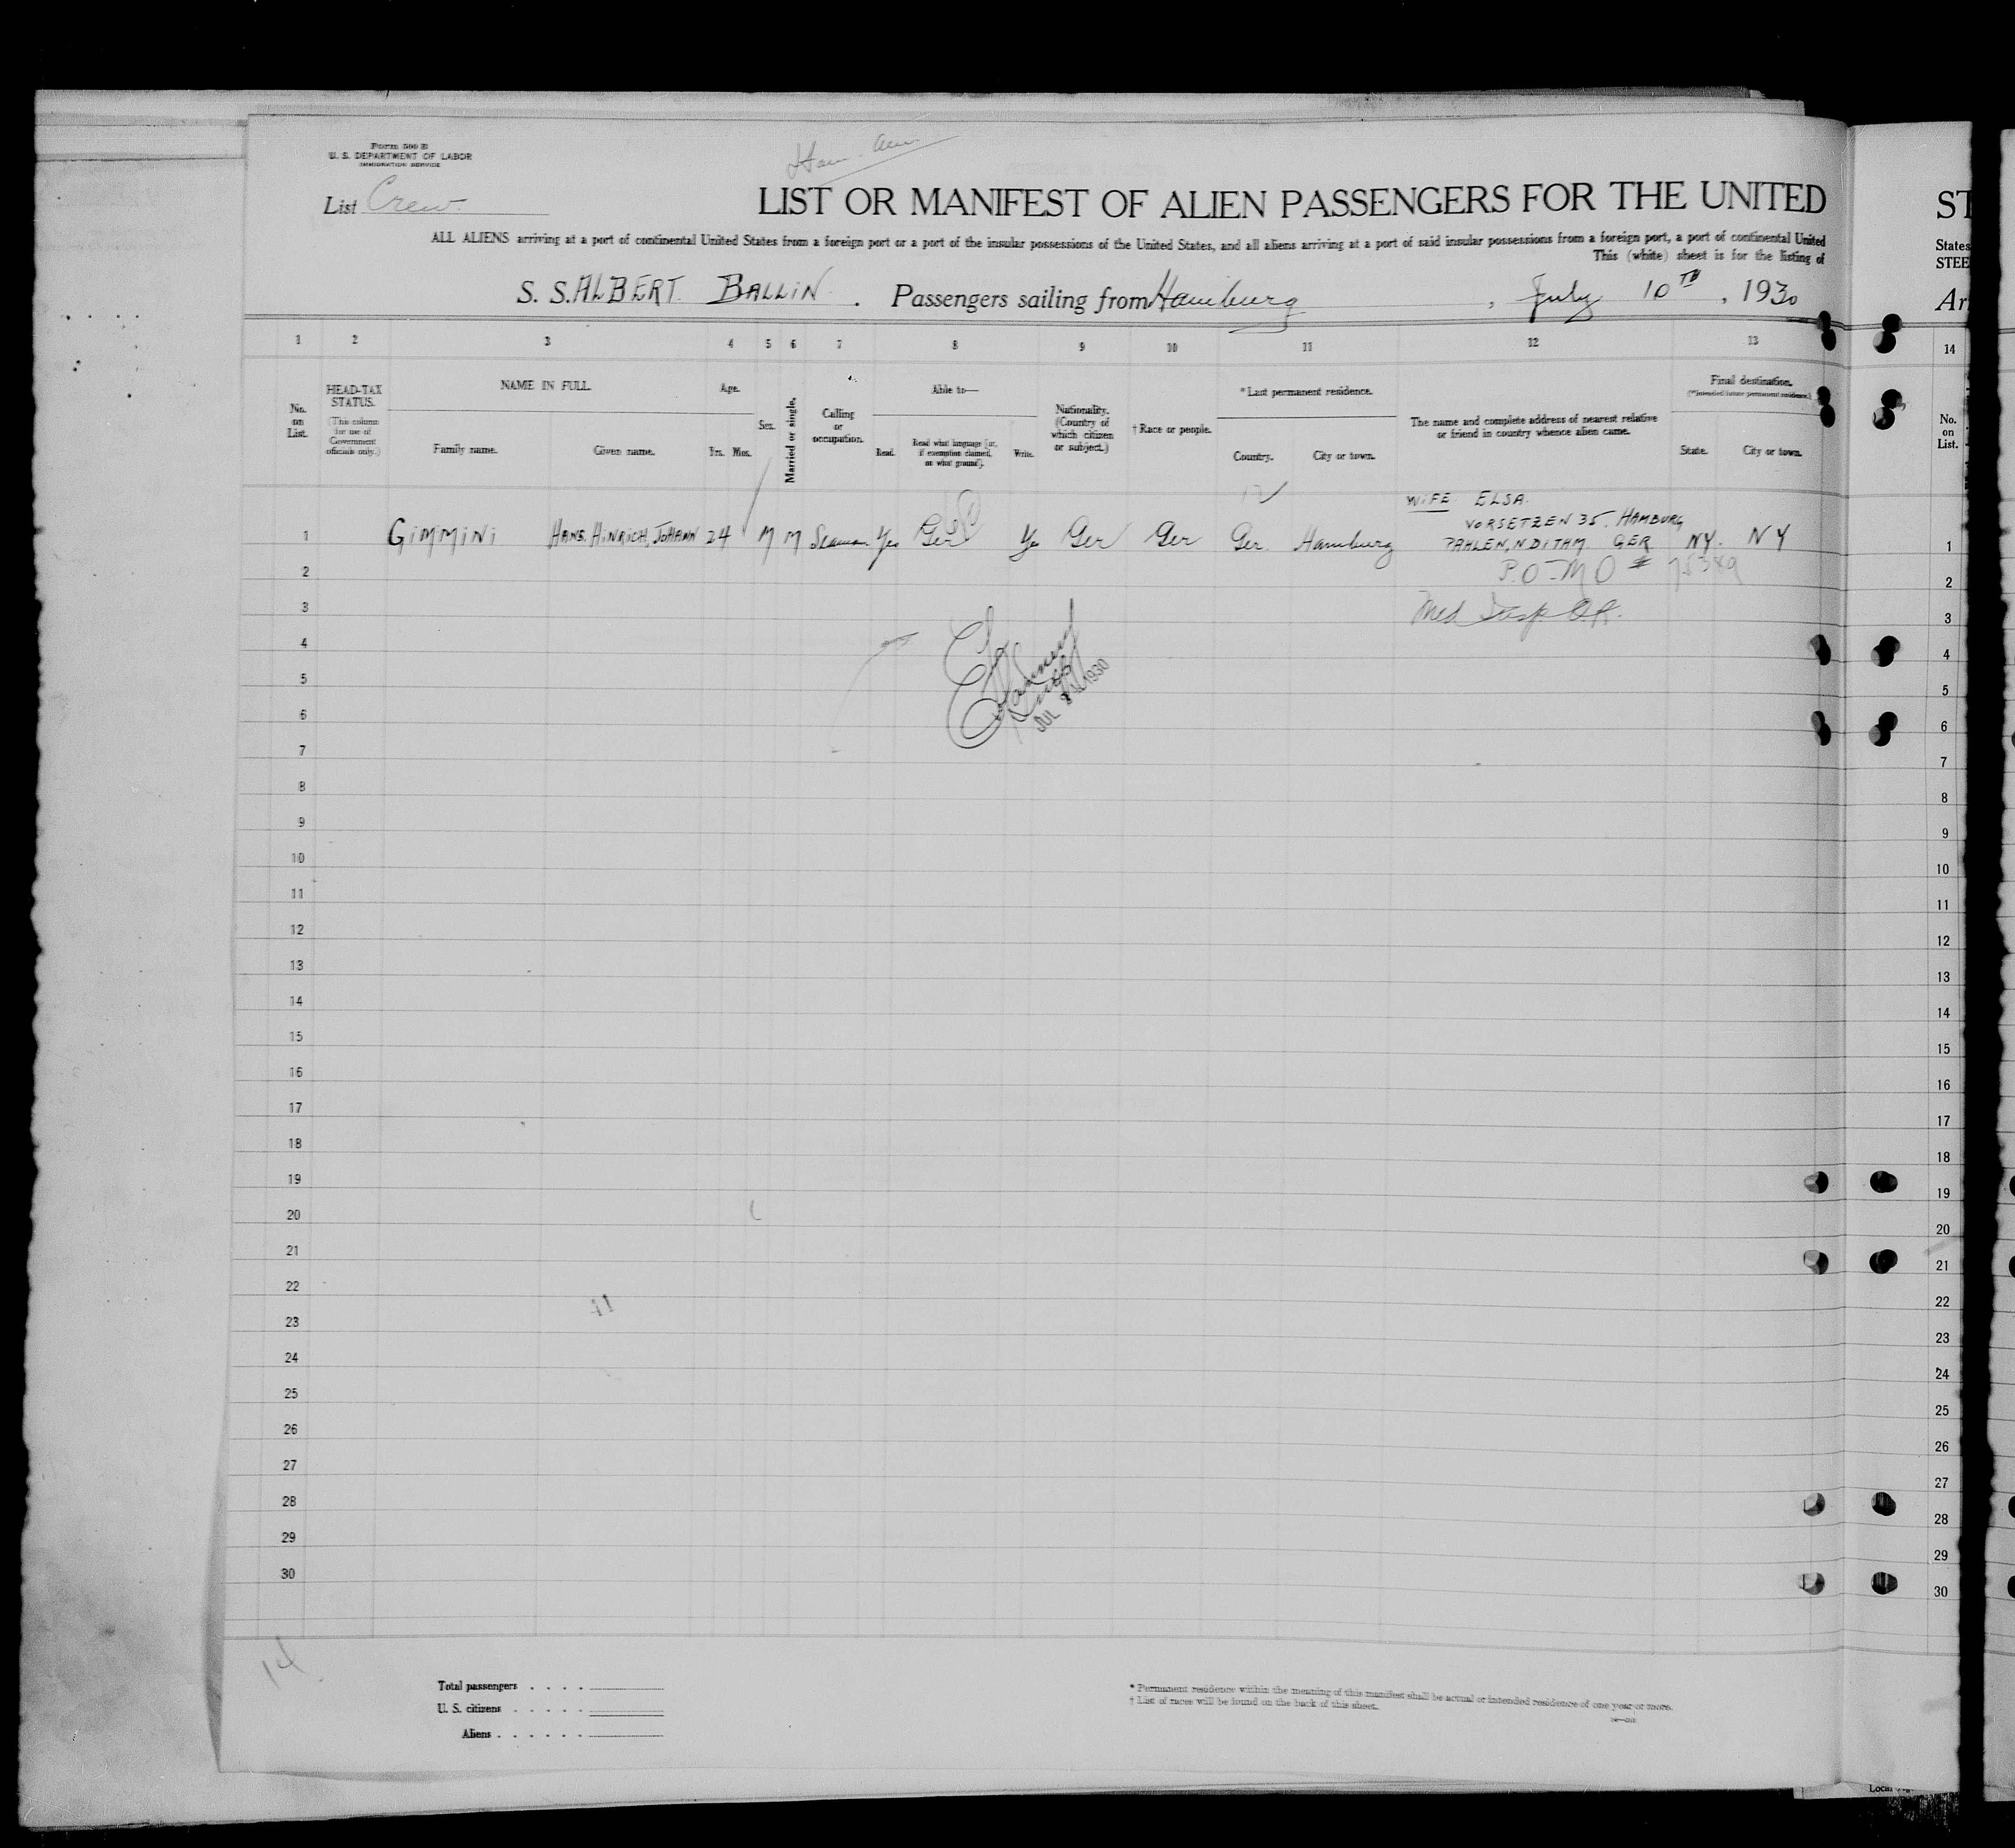 Form 500 B
U. S. DEPARTMENT OF LABOR
IMMIGRATION SERVICE
Ham. Am.
List Crew.
LIST OR MANIFEST OF ALIEN PASSENGERS FOR THE UNITED
ST
ALL ALIENS arriving at a port of continental United States from a foreign port or a port of the insular possessions of the United States, and all aliens arriving at a port of said insular possessions from a foreign port, a port of continental United
States
This (white) sheet is for the listing of
STEE
S. S. ALBERT BALLIN . Passengers sailing from Hamburg , July 10TH , 1930
Ar
1 2 3 4 5 6 7 8 9 10 11 12 13
14
No. on List.
HEAD-TAX STATUS.
(This column for use of Government officials only.)
NAME IN FULL.
Family name. Given name.
Age.
Yrs. Mos.
Sex.
Married or single.
Calling or occupation.
Able to—
Read. Read what language [or, if exemption claimed, on what ground]. Write.
Nationality. (Country of which citizen or subject.)
† Race or people.
* Last permanent residence.
Country. City or town.
The name and complete address of nearest relative or friend in country whence alien came.
Final destination.
(* Intended future permanent residence.)
State. City or town.
No. on List.
WIFE ELSA.
VORSETZEN 35. HAMBURG
1 GIMMINI HANS, HINRICH, JOHANN 24 M M Seaman Yes Ger Ye Ger Ger Ger. Hamburg PAHLEN, N DITHM. GER NY. NY 1
2 P.O-MO # 75389 2
3 Med Insp 3
4 4
5 5
JUL 1930
6 6
7 7
8 8
9 9
10 10
11 11
12 12
13 13
14 14
15 15
16 16
17 17
18 18
19 19
20 20
21 21
22 22
23 23
24 24
25 25
26 26
27 27
28 28
29 29
30 30
14
Total passengers . . . .
U. S. citizens . . . . .
Aliens . . . . . .
* Permanent residence within the meaning of this manifest shall be actual or intended residence of one year or more.
† List of races will be found on the back of this sheet.
Local